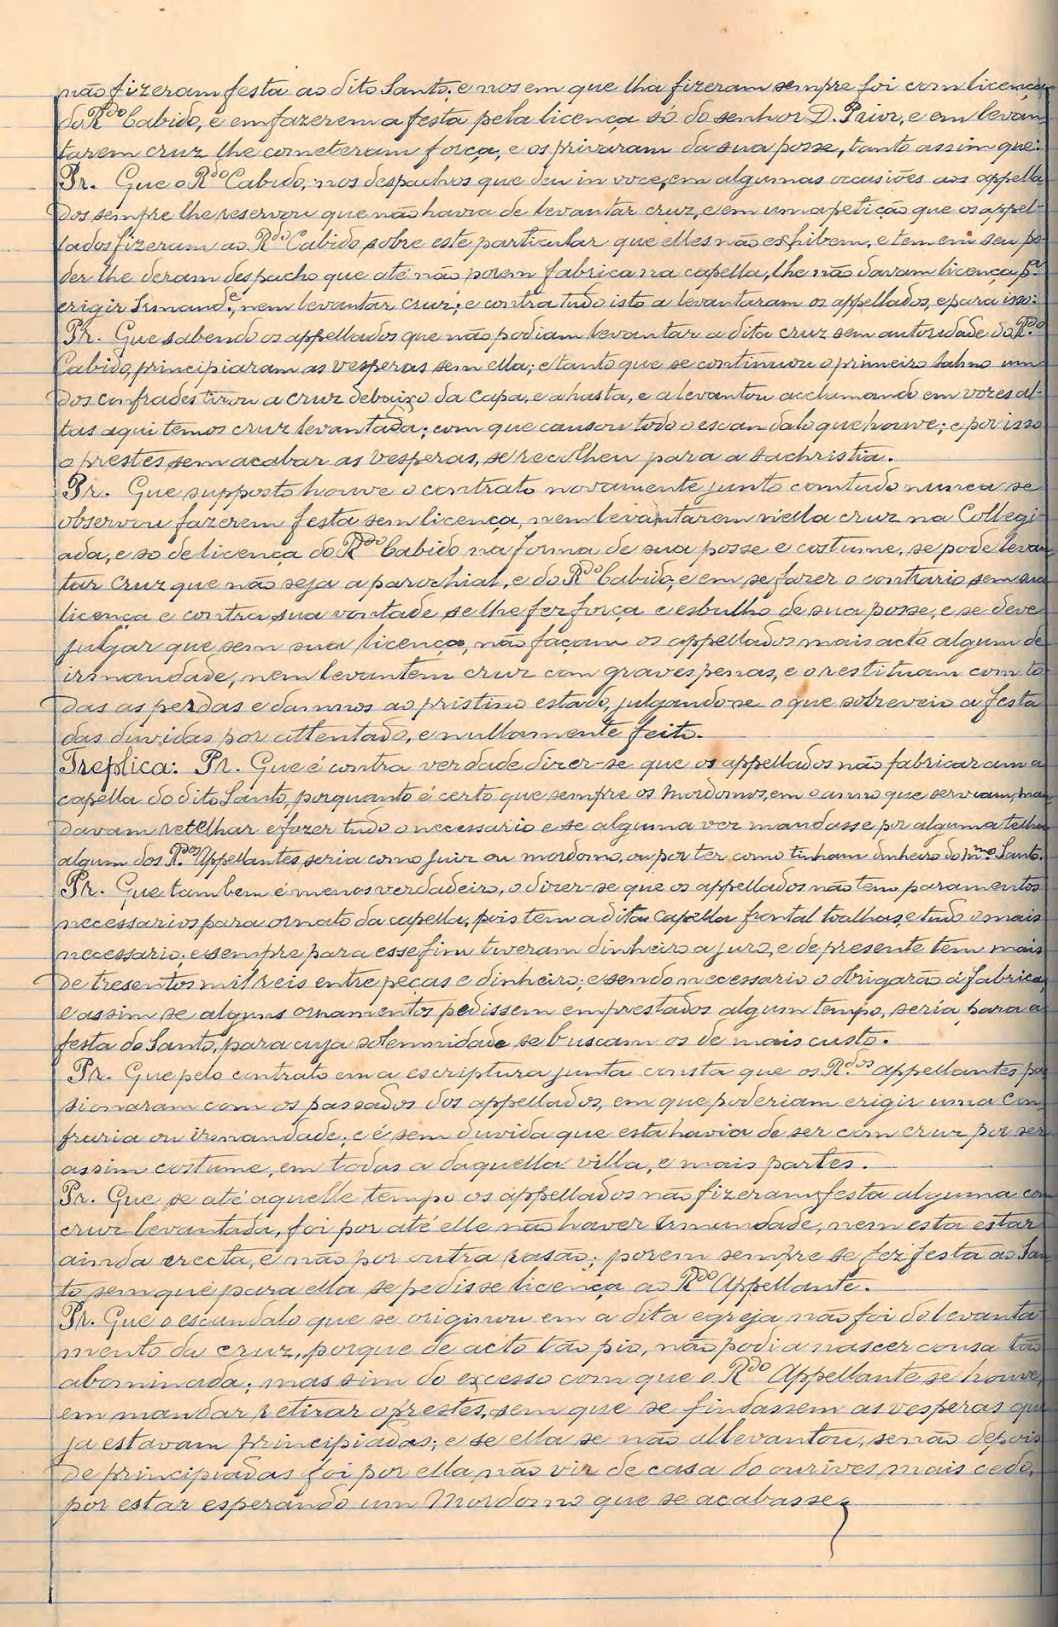 não fizeram festa ao dito Santo; e nos em que lha fizeram sempre foi com licença
do R.do Cabido, e em fazerem a festa pela licença só do senhor D. Prior, e em levan
tarem cruz lhe cometeram força, e os privaram da sua posse, tanto assim que:
Pr. Que o R.do Cabido, nos despachos que deu in voce, em algumas occasiões aos appella
dos sempre lhe reservou que não havia de levantar cruz, e em uma petição que os appel-
lados fizeram ao R.do Cabido sobre este particular que elles não exhibem, e tem em seu po-
der lhe deram despacho que até não porem fabrica na capella, lhe não davam licença p.ª
erigir Irmand.e, nem levantar cruz; e contra tudo isto a levantaram os appellados, e para isso:
Pr. Que sabendo os appellados que não podiam levantar a dita cruz sem autoridade do R.do
Cabido, principiaram as vesperas sem ella; e tanto que se continuou o primeiro salmo um
dos confrades tirou a cruz debaixo da capa, e a hasta, e a levantou acclamando em vozes al-
tas aqui temos cruz levantada; com que causou todo o escandalo que houve; e por isso
o prestes sem acabar as vesperas, se recolheu para a sachristia.
Pr. Que supposto houve o contrato novamente junto comtudo nunca se
observou fazerem festa sem licença, nem levantarem n'ella cruz na Collegi
ada, e só de licença do R.do Cabido na forma de sua posse e costume, se pode levan
tar cruz que não seja a parochial, e do R.do Cabido, e em se fazer o contrario sem sua
licença e contra sua vontade se lhe fez força e esbulho de sua posse, e se deve
julgar que sem sua licença, não façam os appellados mais acto algum de
irmandade, nem levantem cruz com graves penas, e o restituam com to
das as perdas e damnos ao pristino estado, julgando-se o que sobreveio a festa
das duvidas por attentado, e nullamente feito.
Treplica: Pr. Que é contra verdade dizer-se que os appellados não fabricaram a
capella do dito Santo, porquanto é certo que sempre os mordomos, em o anno que serviam, man
davam retelhar e fazer tudo o necessario e se alguma vez mandasse por alguma telha
algum dos R.dos Appellantes, seria como juiz ou mordomo, ou por ter como tinham dinheiro do m.mo Santo.
Pr. Que tambem é menos verdadeiro, o dizer-se que os appellados não tem paramentos
necessarios para ornato da capella, pois tem a dita capella frontal toalhas, e tudo o mais
necessario, e sempre para esse fim tiveram dinheiro a juro, e de presente tem mais
de tresentos mil reis entre peças e dinheiro; e sendo necessario o obrigarão á fabrica,
e assim se alguns ornamentos pedissem emprestados algum tempo, seria para a
festa do Santo, para cuja solemnidade se buscam os de mais custo.
Pr. Que pelo contrato em a escriptura junta consta que os R.dos appellantes po
sionaram com os passados dos appellados, em que poderiam erigir uma con
fraria ou irmandade; e é sem duvida que esta havia de ser com cruz por ser
assim costume, em todas a daquella villa, e mais partes.
Pr. Que se até aquelle tempo os appellados não fizeram festa alguma com
cruz levantada, foi por até elle não haver irmandade, nem esta estar
ainda erecta, e não por outra rasão; porem sempre se fez festa ao San
to sem que para ella se pedisse licença ao R.do Appellante.
Pr. Que o escandalo que se originou em a dita egreja não foi do levanta
mento da cruz, porque de acto tão pio, não podia nascer cousa tão
abominada; mas sim do excesso com que o R.do Appellante se houve,
em mandar retirar o prestes, sem que se findassem as vesperas que
ja estavam principiadas; e se ella se não allevantou, senão depois
de principiadas foi por ella não vir de casa do ourives mais cedo,
por estar esperando um Mordomo que se acabasse,